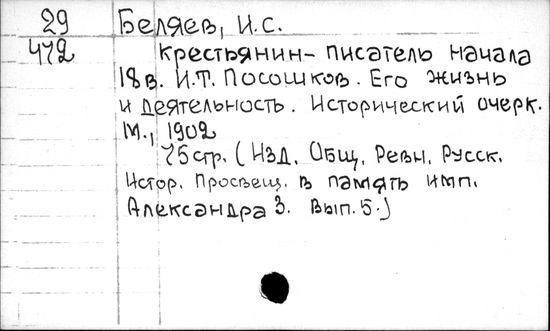 29 Беляев, И.С.
472 Крестьянин-писатель начала
18в. И.Т. Посошков. Его жизнь
и деятельность. Исторический очерк.
М., 1902
75стр. (Изд. Общ. Ревн. Русск.
Истор. Просвещ. в память имп.
Александра 3. Вып.5.)